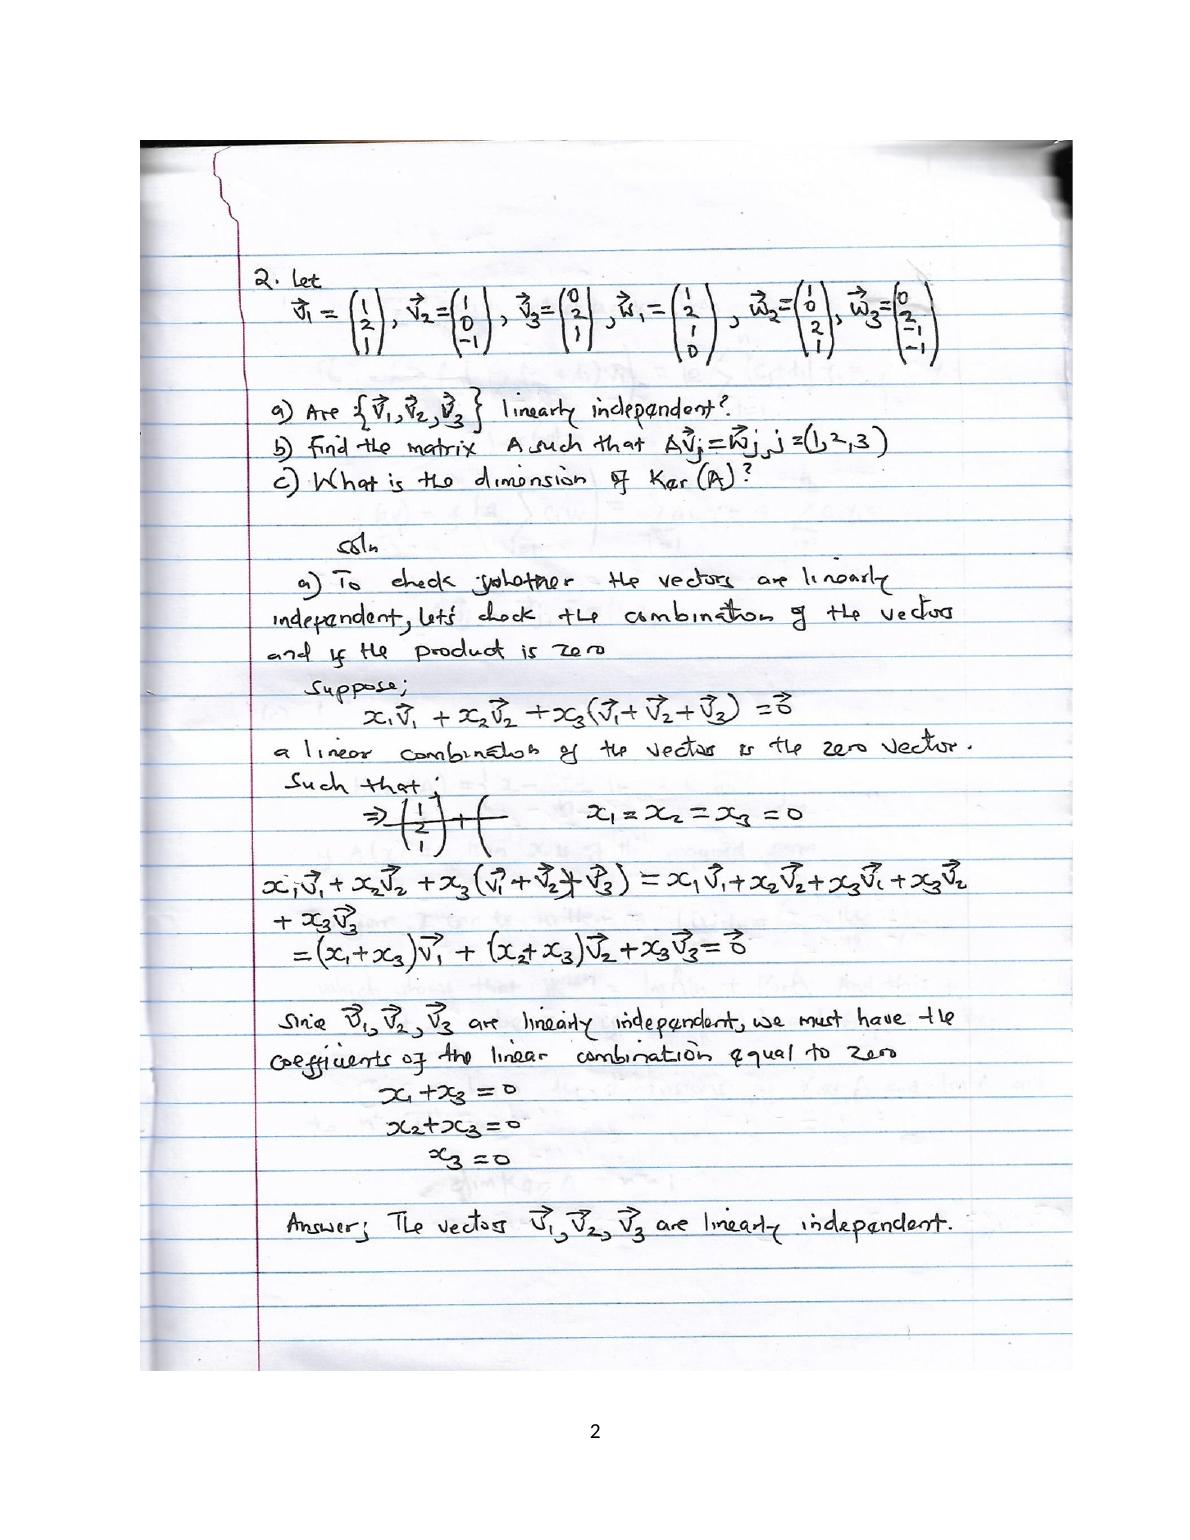 2. Let
v⃗₁ = (1 2 1), v⃗₂ = (1 0 -1), v⃗₃ = (0 2 1), w⃗₁ = (1 2 1 0), w⃗₂ = (1 0 2 1), w⃗₃ = (0 2 -1 -1)
a) Are {v⃗₁, v⃗₂, v⃗₃} linearly independent?
b) find the matrix A such that Av⃗j = w⃗j, j = (1, 2, 3)
c) What is the dimension of Ker (A)?
soln
a) To check whether the vectors are linearly
independent, let's check the combination of the vectors
and if the product is zero
Suppose;
x₁v⃗₁ + x₂v⃗₂ + x₃(v⃗₁ + v⃗₂ + v⃗₃) = 0⃗
a linear combination of the vectors is the zero vector.
Such that;
⇒ (1 2 1) + ( x₁ = x₂ = x₃ = 0
x₁v⃗₁ + x₂v⃗₂ + x₃(v⃗₁ + v⃗₂ + v⃗₃) = x₁v⃗₁ + x₂v⃗₂ + x₃v⃗₁ + x₃v⃗₂
+ x₃v⃗₃
= (x₁ + x₃)v⃗₁ + (x₂ + x₃)v⃗₂ + x₃v⃗₃ = 0⃗
Since v⃗₁, v⃗₂, v⃗₃ are linearly independent, we must have the
coefficients of the linear combination equal to zero
x₁ + x₃ = 0
x₂ + x₃ = 0
x₃ = 0
Answer; The vectors v⃗₁, v⃗₂, v⃗₃ are linearly independent.
2